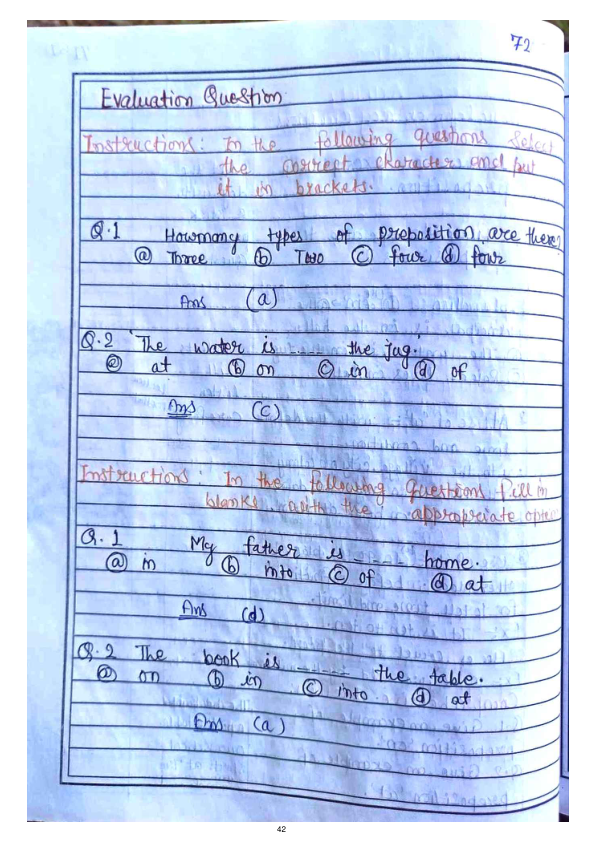 72
Evaluation Question
Instructions: In the following questions Select
the correct character and put
it in brackets.
Q.1 Howmany types of preposition are there?
(a) Three (b) Two (c) four (d) four
Ans (a)
Q.2 The water is ---- the jug.
(a) at (b) on (c) in (d) of
Ans (c)
Instructions: In the following Questions fill in
blanks with the appropriate
Q.1 My father is ---- home.
(a) in (b) into (c) of (d) at
Ans (d)
Q.2 The book is ----- the table.
(a) on (b) in (c) into (d) at
Ans (a)
42